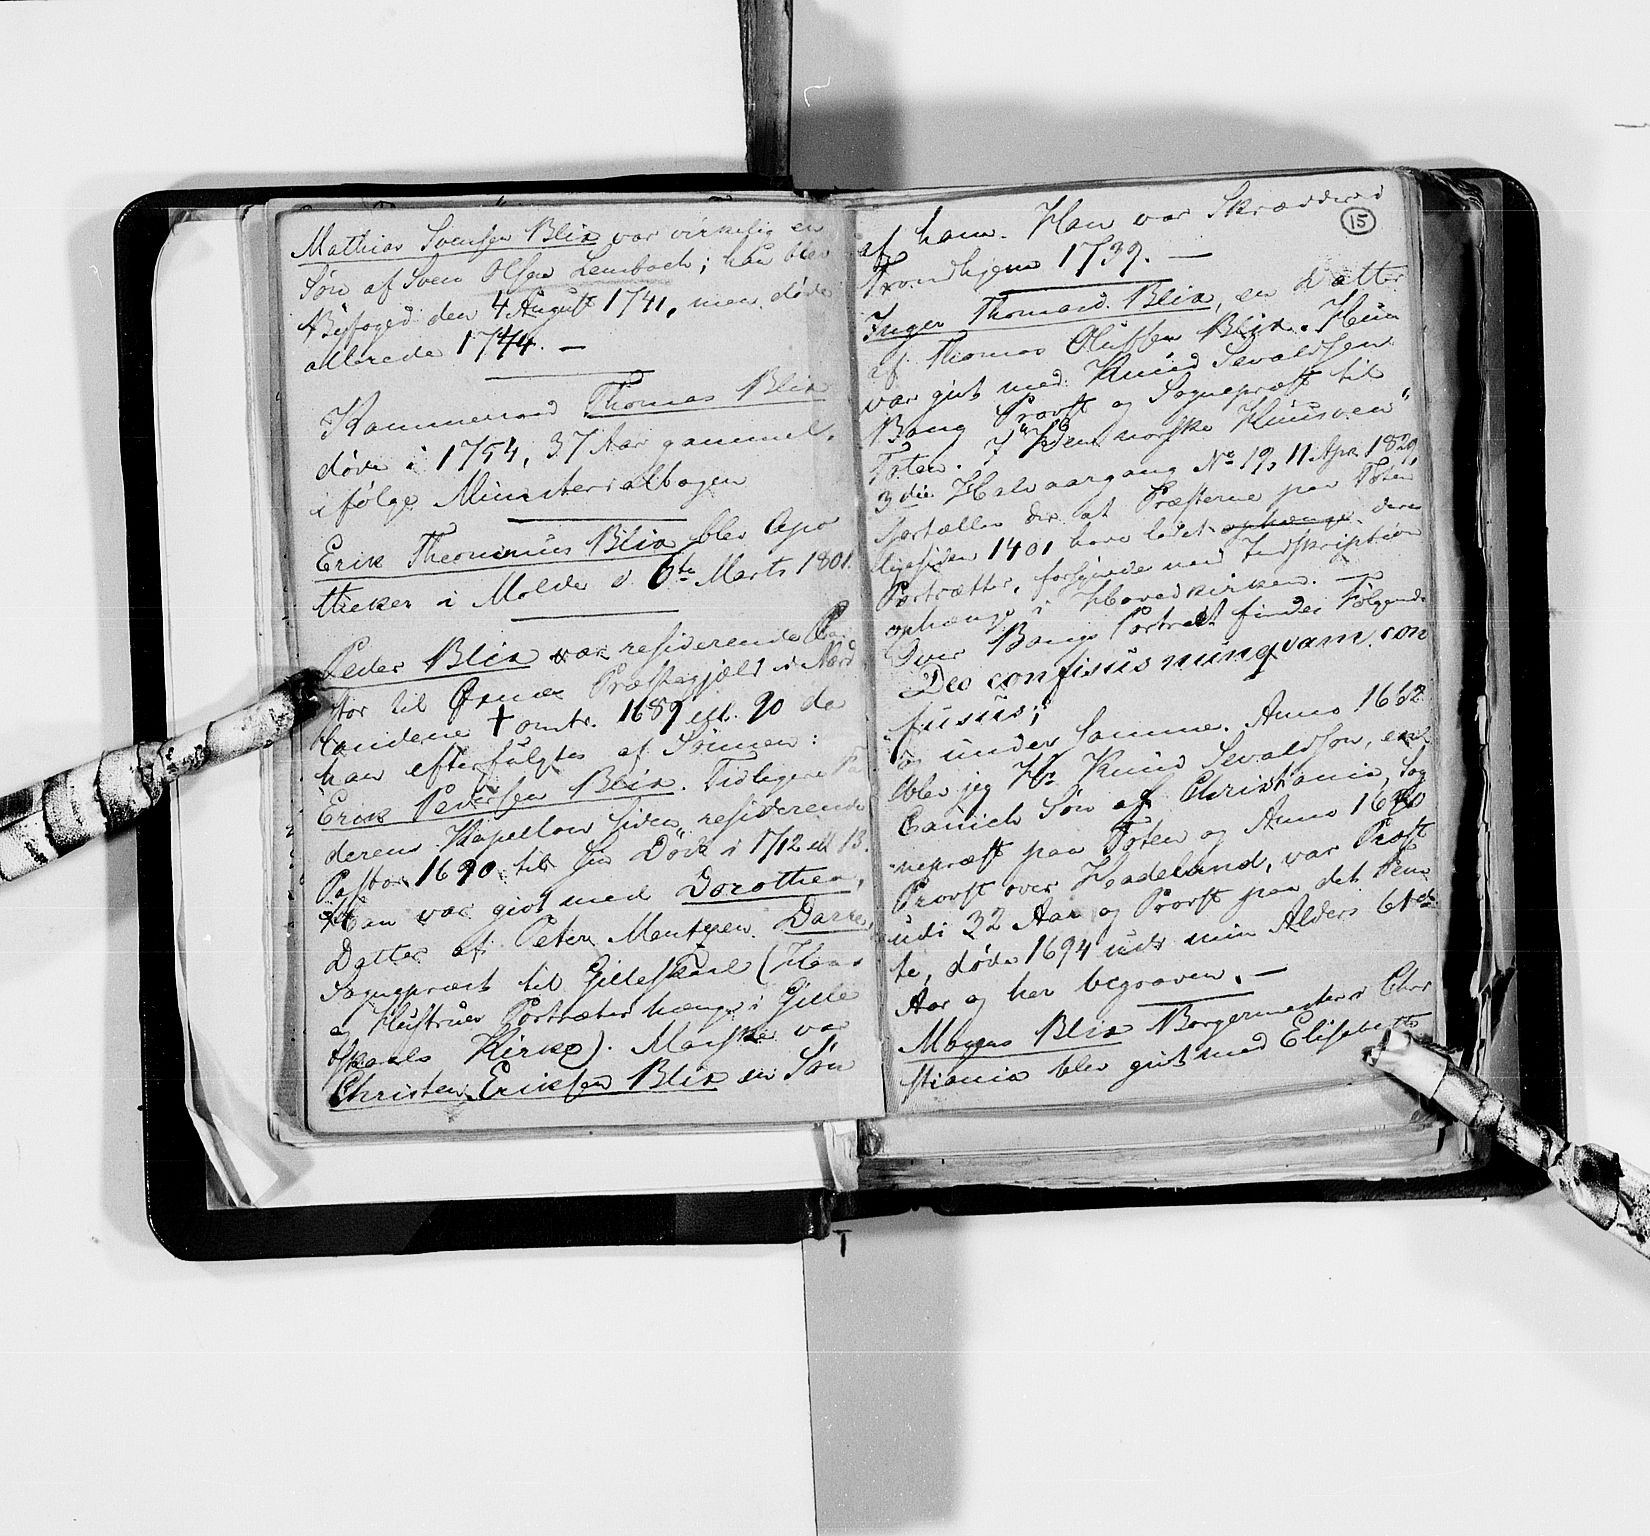 Mathias Svensen Blix var virkelig en
Søn af Sven Olsen Lembach; han blev
Byfoged den 4 August 1741, men døde
allerede 1744. —
Kammerraad Thomas Blix
døde i 1754, 37 Aar gammel,
ifølge Ministerialbogen
Erik Theonimus Blix blev Apo
theker i Molde d. 6te Marts 1801.
Peder Blix var residerende Pa
stor til Præstegjæld i Nord
landene † omtr. 1689 ell. 90 da
han efterfulgtes af Sønnen:
Erik Pedersen Blix. Tidligere
derens Kapellan siden residerende
Pastor 1690 til sin Død i 1712 ell 13.
Han var givt med Dorothea,
Datter af Peter Mentzen Darre,
Sognepræst til Gilleskaal (Hans
og Hustrues Portræter hænge i Gille
skaals Kirke). Maaske var
Christen Eriksen Blix en Søn
15
af ham. Han var Skrædder i
Trondhjem 1739. —
Inger Thomasd. Blix, en Datter
af Thomas Olufsen Blix. Hun
var givt med Knud Sevaldsen
Bang Provst og Sognepræst til
Toten. I "den norske Huusven",
3die Halvaargang No 19, 11 Apr. 1829,
fortælles der at Præsterne paa Toten
ligesiden 1401 have ladet ophænge deres
Portrætter, forsynede med Indskription
ophænge i Hovedkirken. —
Over Bangs Portræt findes Følgende
Deo confisus nunqvam con
fusus;
og under samme. Anno 1662
blev jeg Hr Knud Sevaldson, en
Canich Søn af Christiania, Sog
nepræst paa Toten og Anno 1680
Provst over Hadeland, var Præst
udi 32 Aar og Provst paa det
te, døde 1694 udi min Alders 61de
Aar og her begraven. —
Mogens Blix Borgermester i Chri
stiania blev givt med Elisabeth